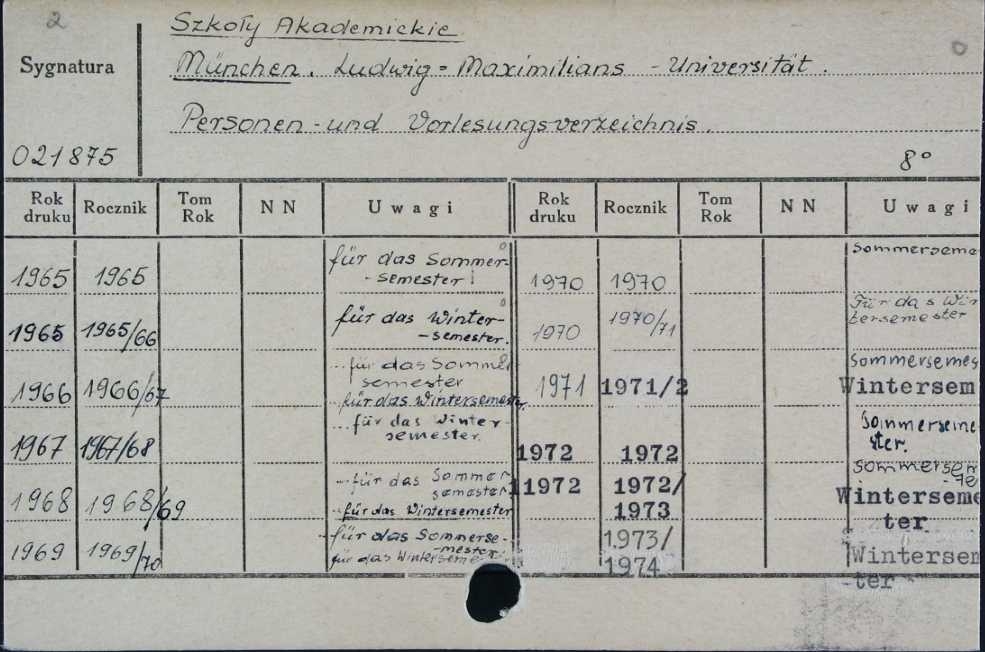 2
Szkoły Akademickie
Sygnatura
München. Ludwig=Maximilians - Universität.
Personen-und Vorlesungsverzeichnis.
021875
8°
Rok druku Rocznik Tom Rok NN Uwagi Rok druku Rocznik Tom Rok NN Uwagi
1965 1965 für das Sommer-
-semester
1970 1970 Sommerseme
1965 1965/66 für das Winter-
-semester.
1970 1970/71 Für das Win
tersemester
1966 1966/67 für das Sommer
semester
für das Wintersemester
1971 1971/2 Sommersemes
Wintersem
1967 1967/68 für das Winter-
semester.
1972 1972 Sommerseme
ster.
1968 1968/69 für das Sommer
semester
für das Wintersemester
1972 1972/
1973
Sommersem
Winterseme
ter
1969 1969/70 für das Sommerse-
-mester
für das Winterseme
1973/
1974
Wintersem
ter